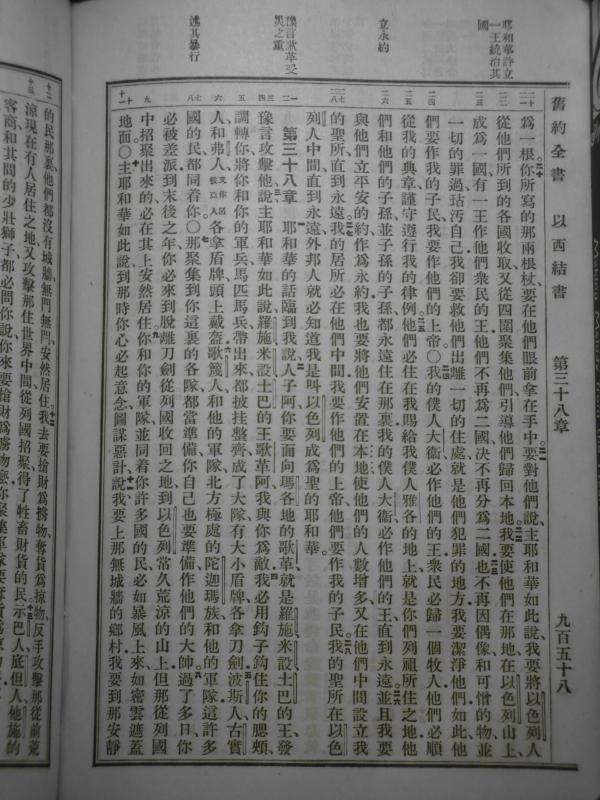 舊約全書 以西結書 第三十八章 九百五十八
耶和華許立
一王統治其
國
立永約
豫言歌革受
災之重
述其暴行
爲一根你所寫的那兩根杖要在他們眼前拿在手中要對他們說主耶和華如此說我要將以色列人
從他們所到的各國收取又從四圍聚集他們引導他們歸回本地我要使他們在那地在以色列山上
成爲一國有一王作他們衆民的王他們不再爲二國決不再分爲二國也不再因偶像和可憎的物並
一切的罪過玷汚自己我卻要救他們出離一切的住處就是他們犯罪的地方我要潔淨他們如此他
們要作我的子民我要作他們的上帝〇我的僕人大衞必作他們的王衆民必歸一個牧人他們必順
從我的典章謹守遵行我的律例他們必住在我賜給我僕人雅各的地上就是你們列祖所住之地他
們和他們的子孫並子孫的子孫都永遠住在那裏我的僕人大衞必作他們的王直到永遠並且我要
與他們立平安的約作爲永約我也要將他們安置在本地使他們的人數增多又在他們中間設立我
的聖所直到永遠我的居所必在他們中間我要作他們的上帝他們要作我的子民我的聖所在以色
列人中間直到永遠外邦人就必知道我是叫以色列成爲聖的耶和華
第三十八章 耶和華的話臨到我說人子阿你要面向瑪各地的歌革就是羅施米設土巴的王發
豫言攻擊他說主耶和華如此說羅施米設土巴的王歌革阿我與你爲敵我必用鈎子鈎住你的腮頰
調轉你將你和你的軍兵馬匹馬兵帶出來都披挂整齊成了大隊有大小盾牌各拿刀劍波斯人古實
人和弗人各拿盾牌頭上戴盔歌篾人和他的軍隊北方極處的陀迦瑪族和他的軍隊這許多
國的民都同着你〇那聚集到你這裏的各隊都當準備你自己也要準備作他們的大帥過了多日你
必被差派到末後之年你必來到脫離刀劍從列國收回之地到以色列常久荒涼的山上但那從列國
中招聚出來的必在其上安然居住你和你的軍隊並同着你許多國的民必如暴風上來如密雲遮蓋
地面〇主耶和華如此說到那時你心必起意念圖謀惡計說我要上那無城牆的鄉村我要到那安靜
的民那裏他們都沒有城牆無門無閂安然居住我去要搶財爲擄物奪貨爲掠物反手攻擊那從前荒
涼現在有人居住之地又攻擊那住世界中間從列國招聚得了牲畜財貨的民示巴人底但人他施的
客商和其間的少壯獅子都必問你說你來要搶財爲擄物麼你聚集軍隊要奪貨爲掠物